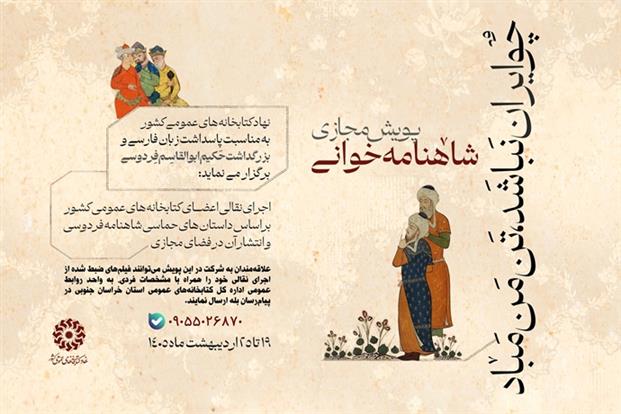 چو ایران نباشد، تن من مباد
پویش مجازی
شاهنامه‌خوانی
نهاد کتابخانه‌های عمومی کشور
به مناسبت پاسداشت زبان فارسی و
بزرگداشت حکیم ابوالقاسم فردوسی
برگزار می نماید:
اجرای نقالی اعضای کتابخانه‌های عمومی کشور
بر اساس داستان‌های حماسی شاهنامه فردوسی
و انتشار آن در فضای مجازی
علاقه‌مندان به شرکت در این پویش می‌توانند فیلم‌های ضبط شده از
اجرای نقالی خود را همراه با مشخصات فردی، به واحد روابط
عمومی اداره کل کتابخانه‌های عمومی استان خراسان جنوبی در
پیام‌رسان بله ارسال نمایند.
۰۹۰۵۵۰۲۶۸۷۰
۱۹ تا ۲۵ اردیبهشت ماه ۱۴۰۵
نهاد کتابخانه‌های عمومی کشور